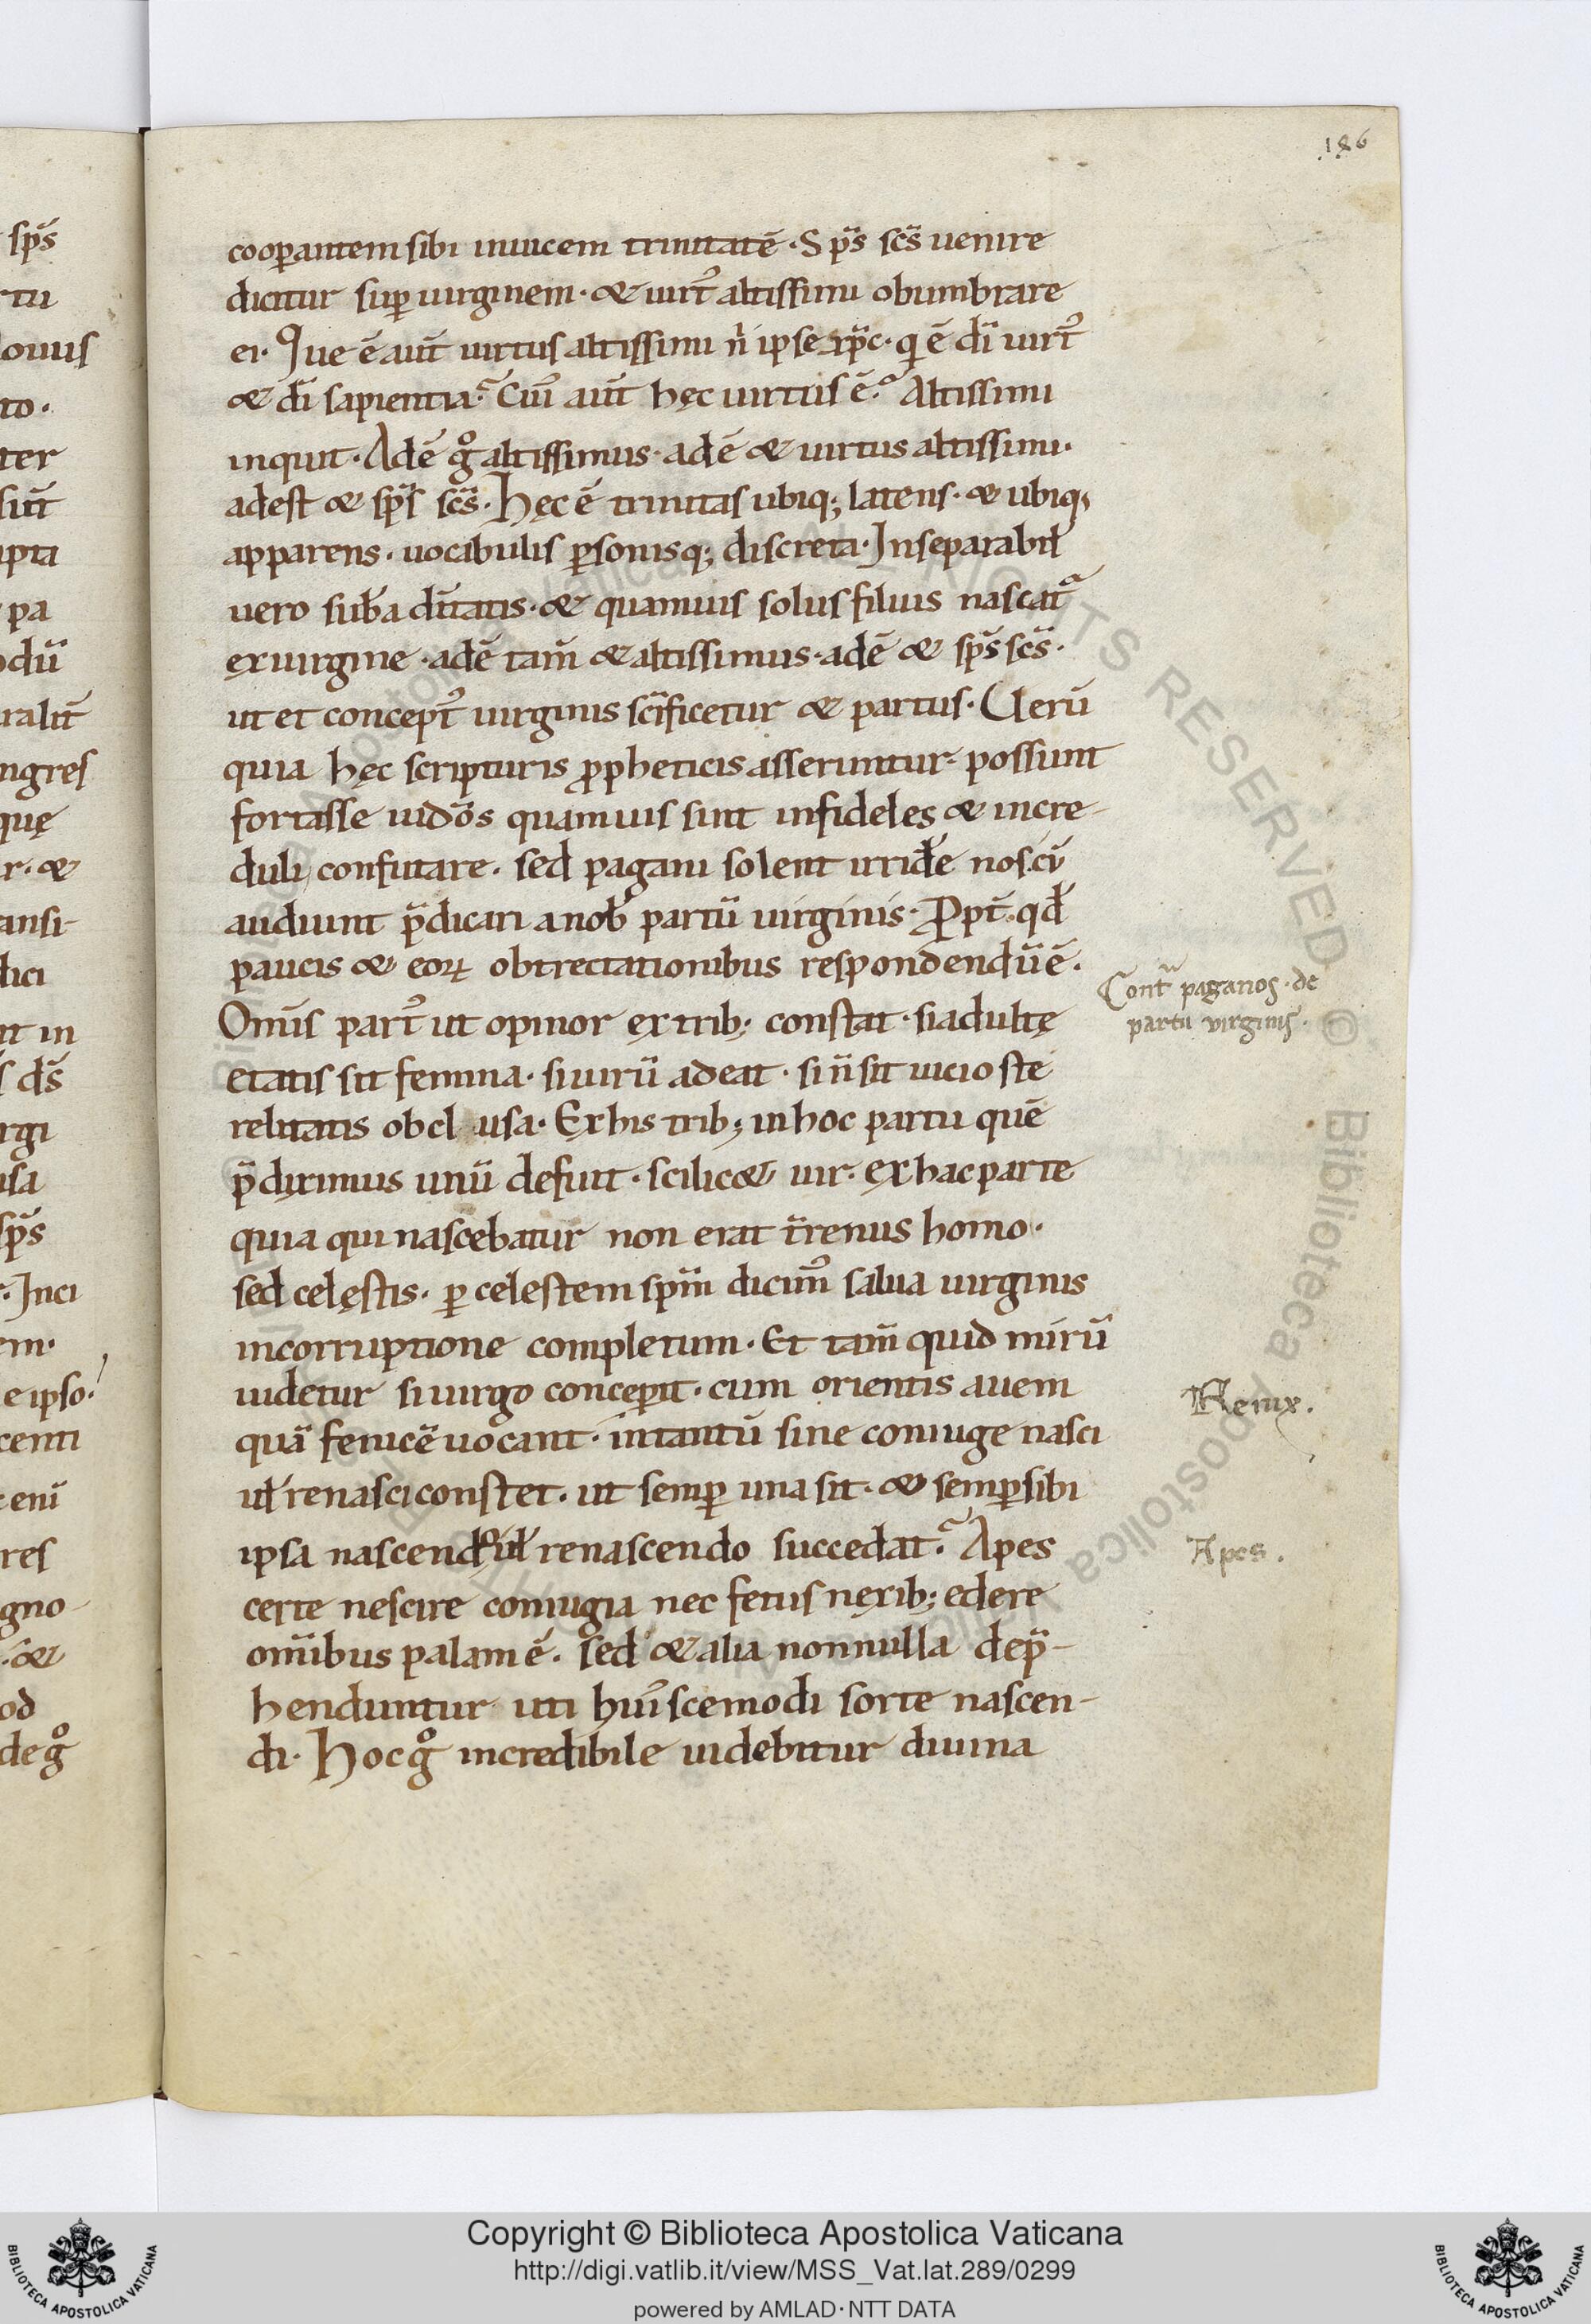 186
cooꝑantem sibi inuicem trinitatē. Sp̄s sc̄s uenire
dicitur suꝑ uirginem. & uirt᾽ altissimi obumbrare
ei. Que ē aut̄ uirtus altissimi n̄ ipse xp̄c. qi ē dī uirt᾽
& dī sapientia? Cui᾽ aut̄ hęc uirtus ē? Altissimi
inquit. Adē gͦ altissimus. adē & uirtus altissimi.
adest & sp̄s sc̄s. Hęc ē trinitas ubiq; latens. & ubiq;
apparens. uocabulis ꝑsonisq; discreta. Inseparabił
uero sub̄a dītatis. & quamuis solus filius nascat᾽
ex uirgine. adē tam̄ & altissimus. adē & sp̄s sc̄s.
ut et concept᾽ uirginis sc̄ificetur & partus. Uerū
quia hęc scripturis ꝓpheticis asseruntur. possunt
fortasse iudōs quamuis sint infideles & incre-
duli, confutare. sed pagani solent irridē nos. cū
audiunt p̄dicari a nob̄ partū uirginis. Propt̄ qđ
paucis & eoꝝ obtrectationibus respondendū ē.
Contᵃ paganos. de
partu virginis.
Om̄is part᾽ ut opinor ex trib; constat. si adultę
etatis sit femina. si uirū adeat. si n̄ sit uicio ste
relitatis obcl usa. Ex his trib; in hoc partu quē
p̄diximus unū defuit. scilic& uir. ex hac parte
quia qui nascebatur non erat t̄renus homo.
sed celęstis. ꝑ celestem sp̄m dicim᾽ salua uirginis
incorruptione completum. Et tam̄ quid mirū
uidetur si uirgo conceꝑit. cum orientis auem
Fenix.
quā fenicē uocant. intantū sine coniuge nasci
uł renasci constet. ut semꝑ una sit. & semꝑ sibi
ipsa nascendo uł renascendo succedat? Apes
Apes.
certe nescire coniugia nec fetus nexib; edere
om̄ibus palam ē. sed & alia nonnulla dep̄-
henduntur uti hui᾽scemodi sorte nascen-
di. Hoc gͦ incredibile uidebitur diuina
sp̄s
ouis
to.
ter
sūt
ipta
pa
odū
ralit̄
ngres
quę
r. &
ansi-
dici
it in
ds̄
rgi
usa
sp̄s
. Inci
em.
e ipso.
centi
enī
res
gno-
. &
od
de gͦ
Copyright © Biblioteca Apostolica Vaticana
http://digi.vatlib.it/view/MSS_Vat.lat.289/0299
powered by AMLAD·NTT DATA
BIBLIOTECA APOSTOLICA VATICANA
BIBLIOTECA APOSTOLICA VATICANA